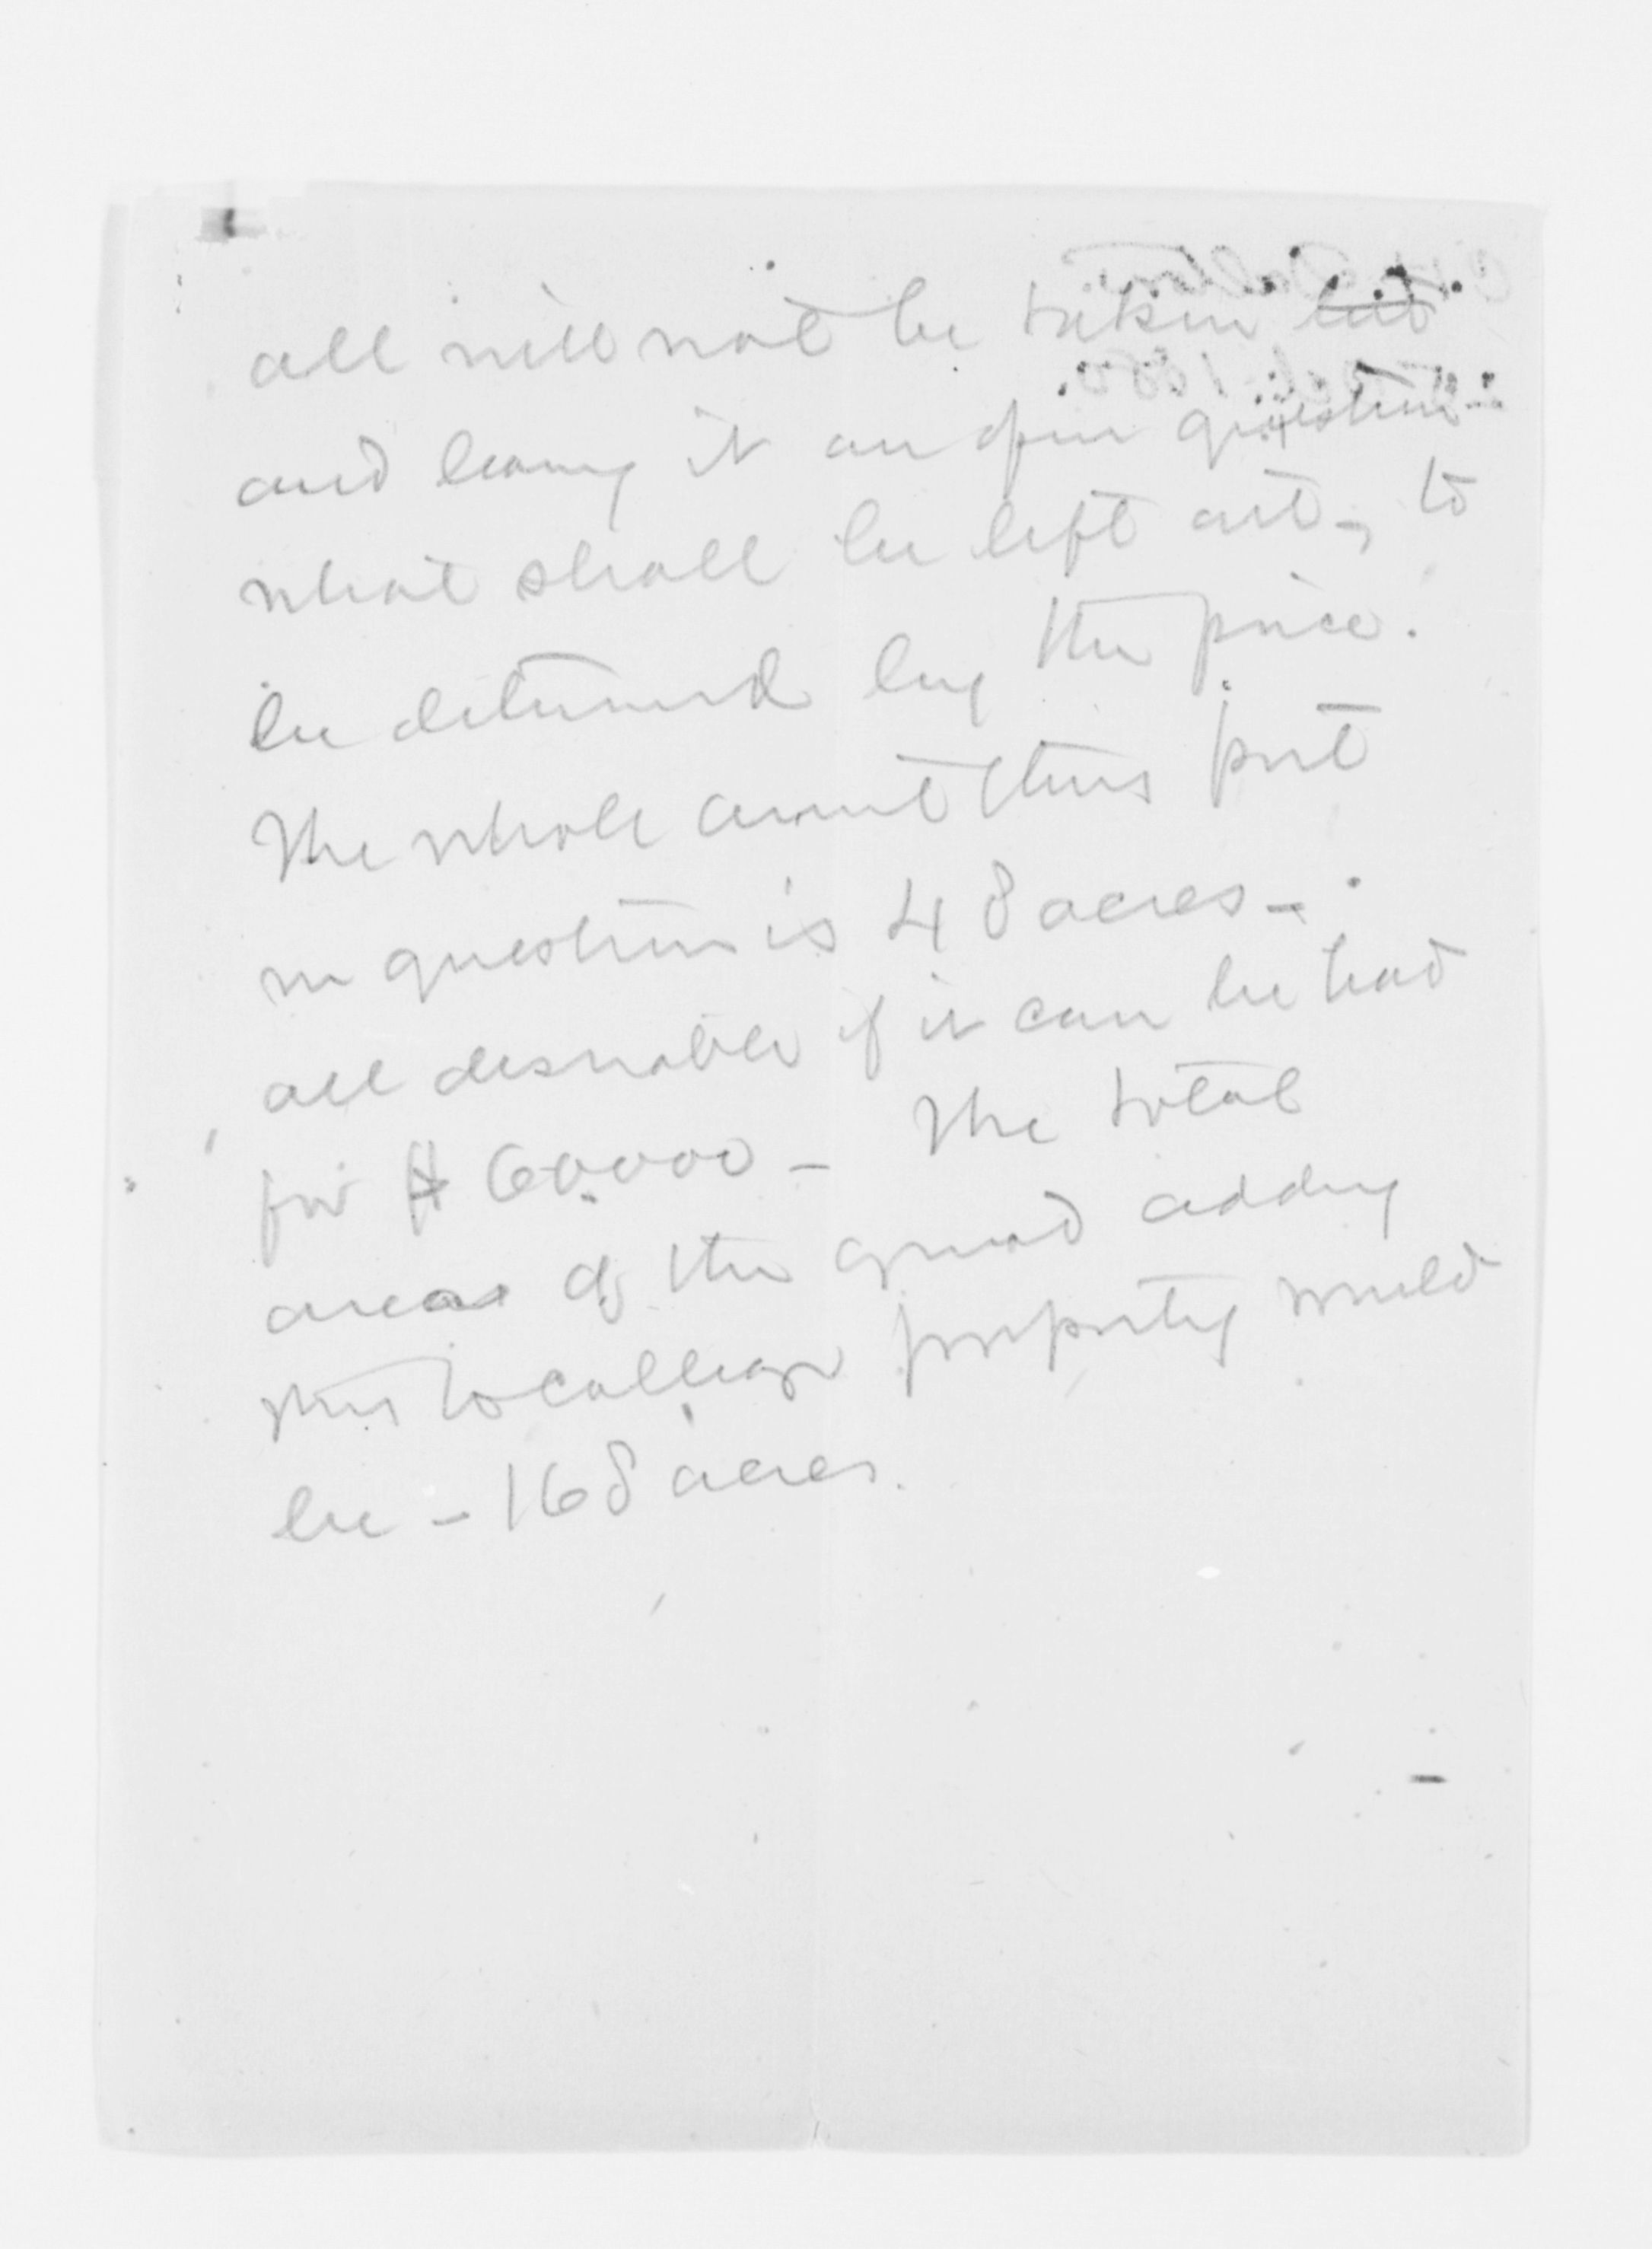 all will not be taken but
and leaving it an open question
what shall be left out, to
be determined by the price.
The whole amount thus put
in question is 48 acres -
all desirable if it can be had
for $60,000 - The total
area of the ground adding
this to college property would
be - 168 acres.